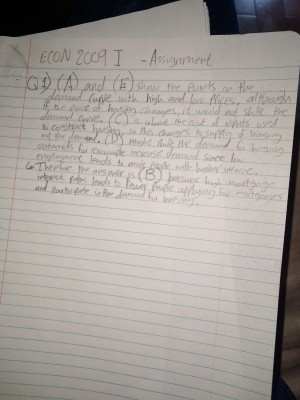 ECON 2009 I - Assignment
- Q1) (A) and (E) show the points on the
demand curve with high and low prices, although
if the price of housing changes, it would not shift the
demand curve. (C) is about the cost of inputs used
to construct housing, so this changes to supply of housing
not the demand. (D) might shift the demand for housing
outwards for example increase demand since low
employment leads to more people with higher income.
Therefore the answer is (B) because high mortgage
interest rates leads to fewer people applying for mortgages
and participate in the demand for housing.